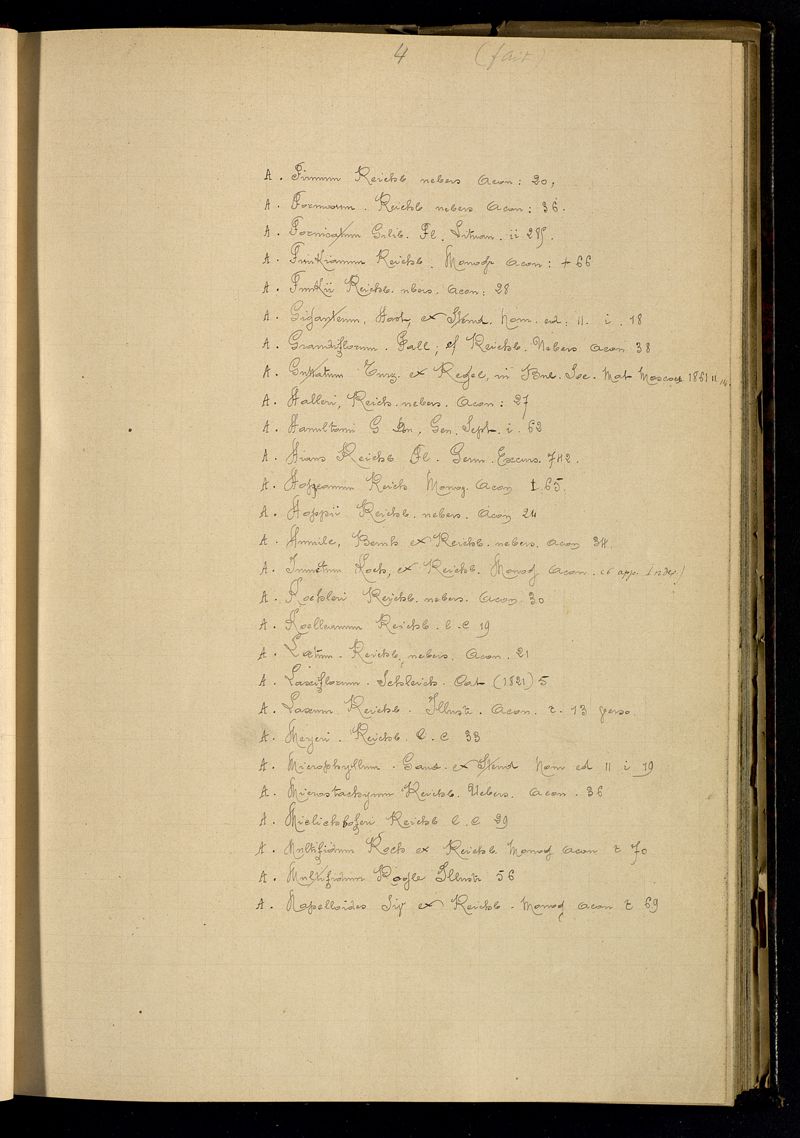 4 (fait)
A. Firmum Reichb nebers Acon: 20,
A. Formosum. Reichb nebers. Acon: 36.
A. Fornicatum Gilib. Fl. Lituan. ii 285.
A. Funkianum Reichb. Monogr Acon: + 66
A. Funkii Reichb. nbers. Acon: 28
A. Giganteum, Host, ex Steud. Nom. ed: II. i. 18
A. Grandiflorum. Fall, ef Reichb. Uebers Acon 38
A. Guttatum Turz. ex Regel, in Bul. Soc. Mat Moscou 1861 II
A. Halleri, Reich. nebers. Acon: 27
A. Hamiltoni G Don, Gen. Sept. i. 62
A. Hians Reichb Fl. Germ. Excurs. 742.
A. Reich Monog. Acon t. 65.
A. Hoppii Reichb. nebers. Acon 24
A. Humile, Bernh ex Reichb. nebers. Acon 34.
A. Junctum Koch, ex Reichb. Monog Acon. app. Index)
A. Koehleri Reichb. nebers. Acon. 30
A. Koelleanum Reichb. l. c 19
A. Lætum. Reichb, nebers. Acon. 21
A. Laxiflorum. Schleich. Cat (1821) 5
A. Laxum Reichb. Illustr. Acon. t. 13 perso.
A. Meyeri. Reichb. l. c 33
A. Microphyllum. Gaud. ex Steud Nom ed II i 19
A. Microstachyum Reichb. Uebers. Acon. 36
A. Mielichhoferi Reichb l. c 29
A. Multifidum Koch ex Reichb. Monog Acon t 70
A. Multifidum Royle Illustr 56
A. Napelloides Sw ex Reichb. Monog Acon t 69